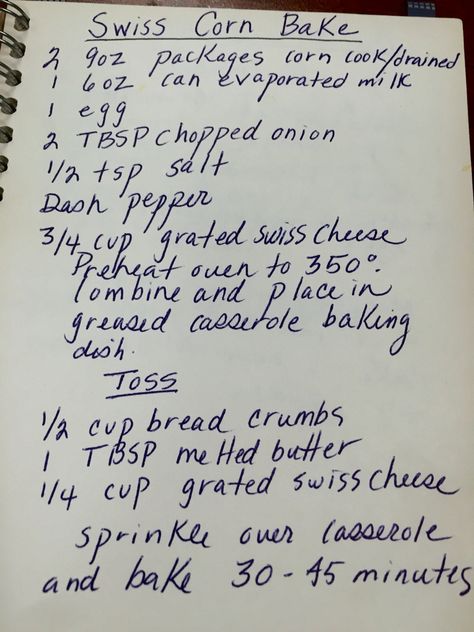 Swiss Corn Bake
2 9oz packages corn cook/drained
1 6oz can evaporated milk
1 egg
2 TBSP chopped onion
1/2 tsp salt
Dash pepper
3/4 cup grated swiss cheese
Preheat oven to 350°.
Combine and place in
greased casserole baking
dish.
Toss
1/2 cup bread crumbs
1 TBSP melted butter
1/4 cup grated swiss cheese
sprinkle over casserole
and bake 30-45 minutes